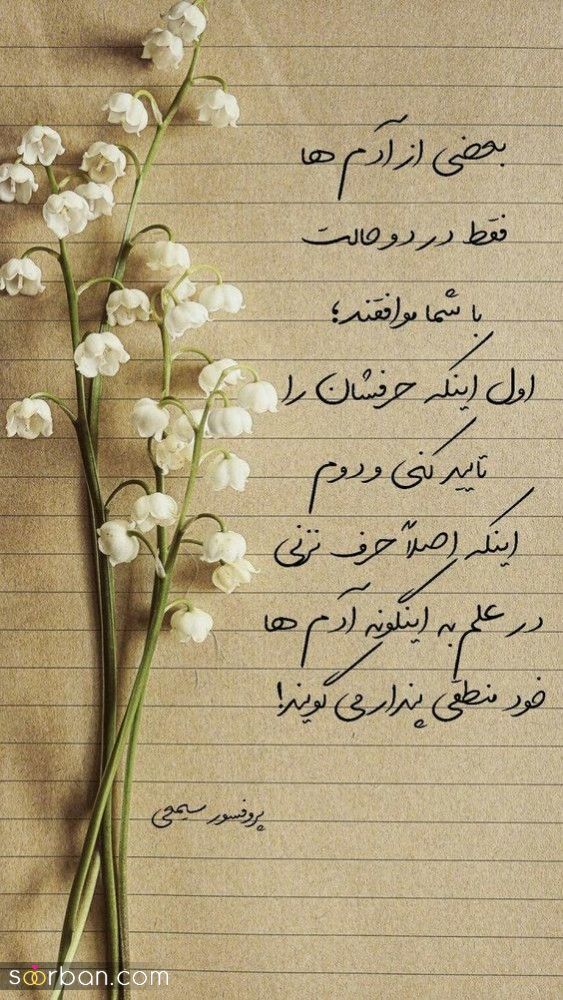 بعضی از آدم ها
فقط در دو حالت
با شما موافقند؛
اول اینکه حرفشان را
تایید کنی و دوم
اینکه اصلاً حرف نزنی
در علم به اینگونه آدم ها
خود منطقی پندار می گویند!
پروفسور سمیعی
soorban.com